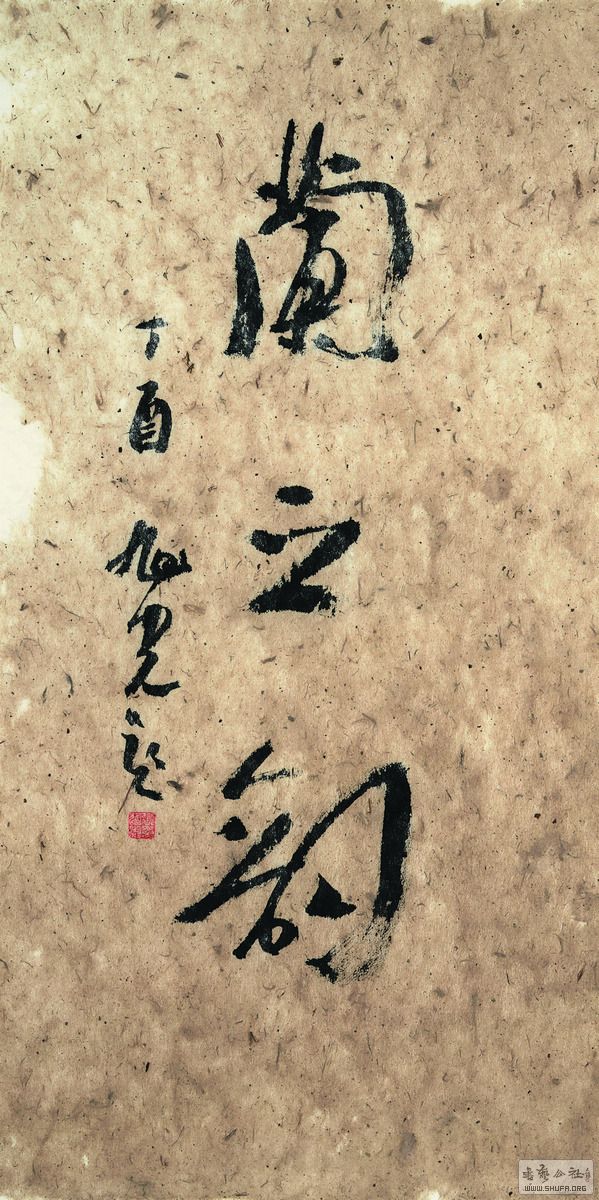 蘭之韵
丁酉 旭光题
书艺公社
WWW.SHUFA.ORG